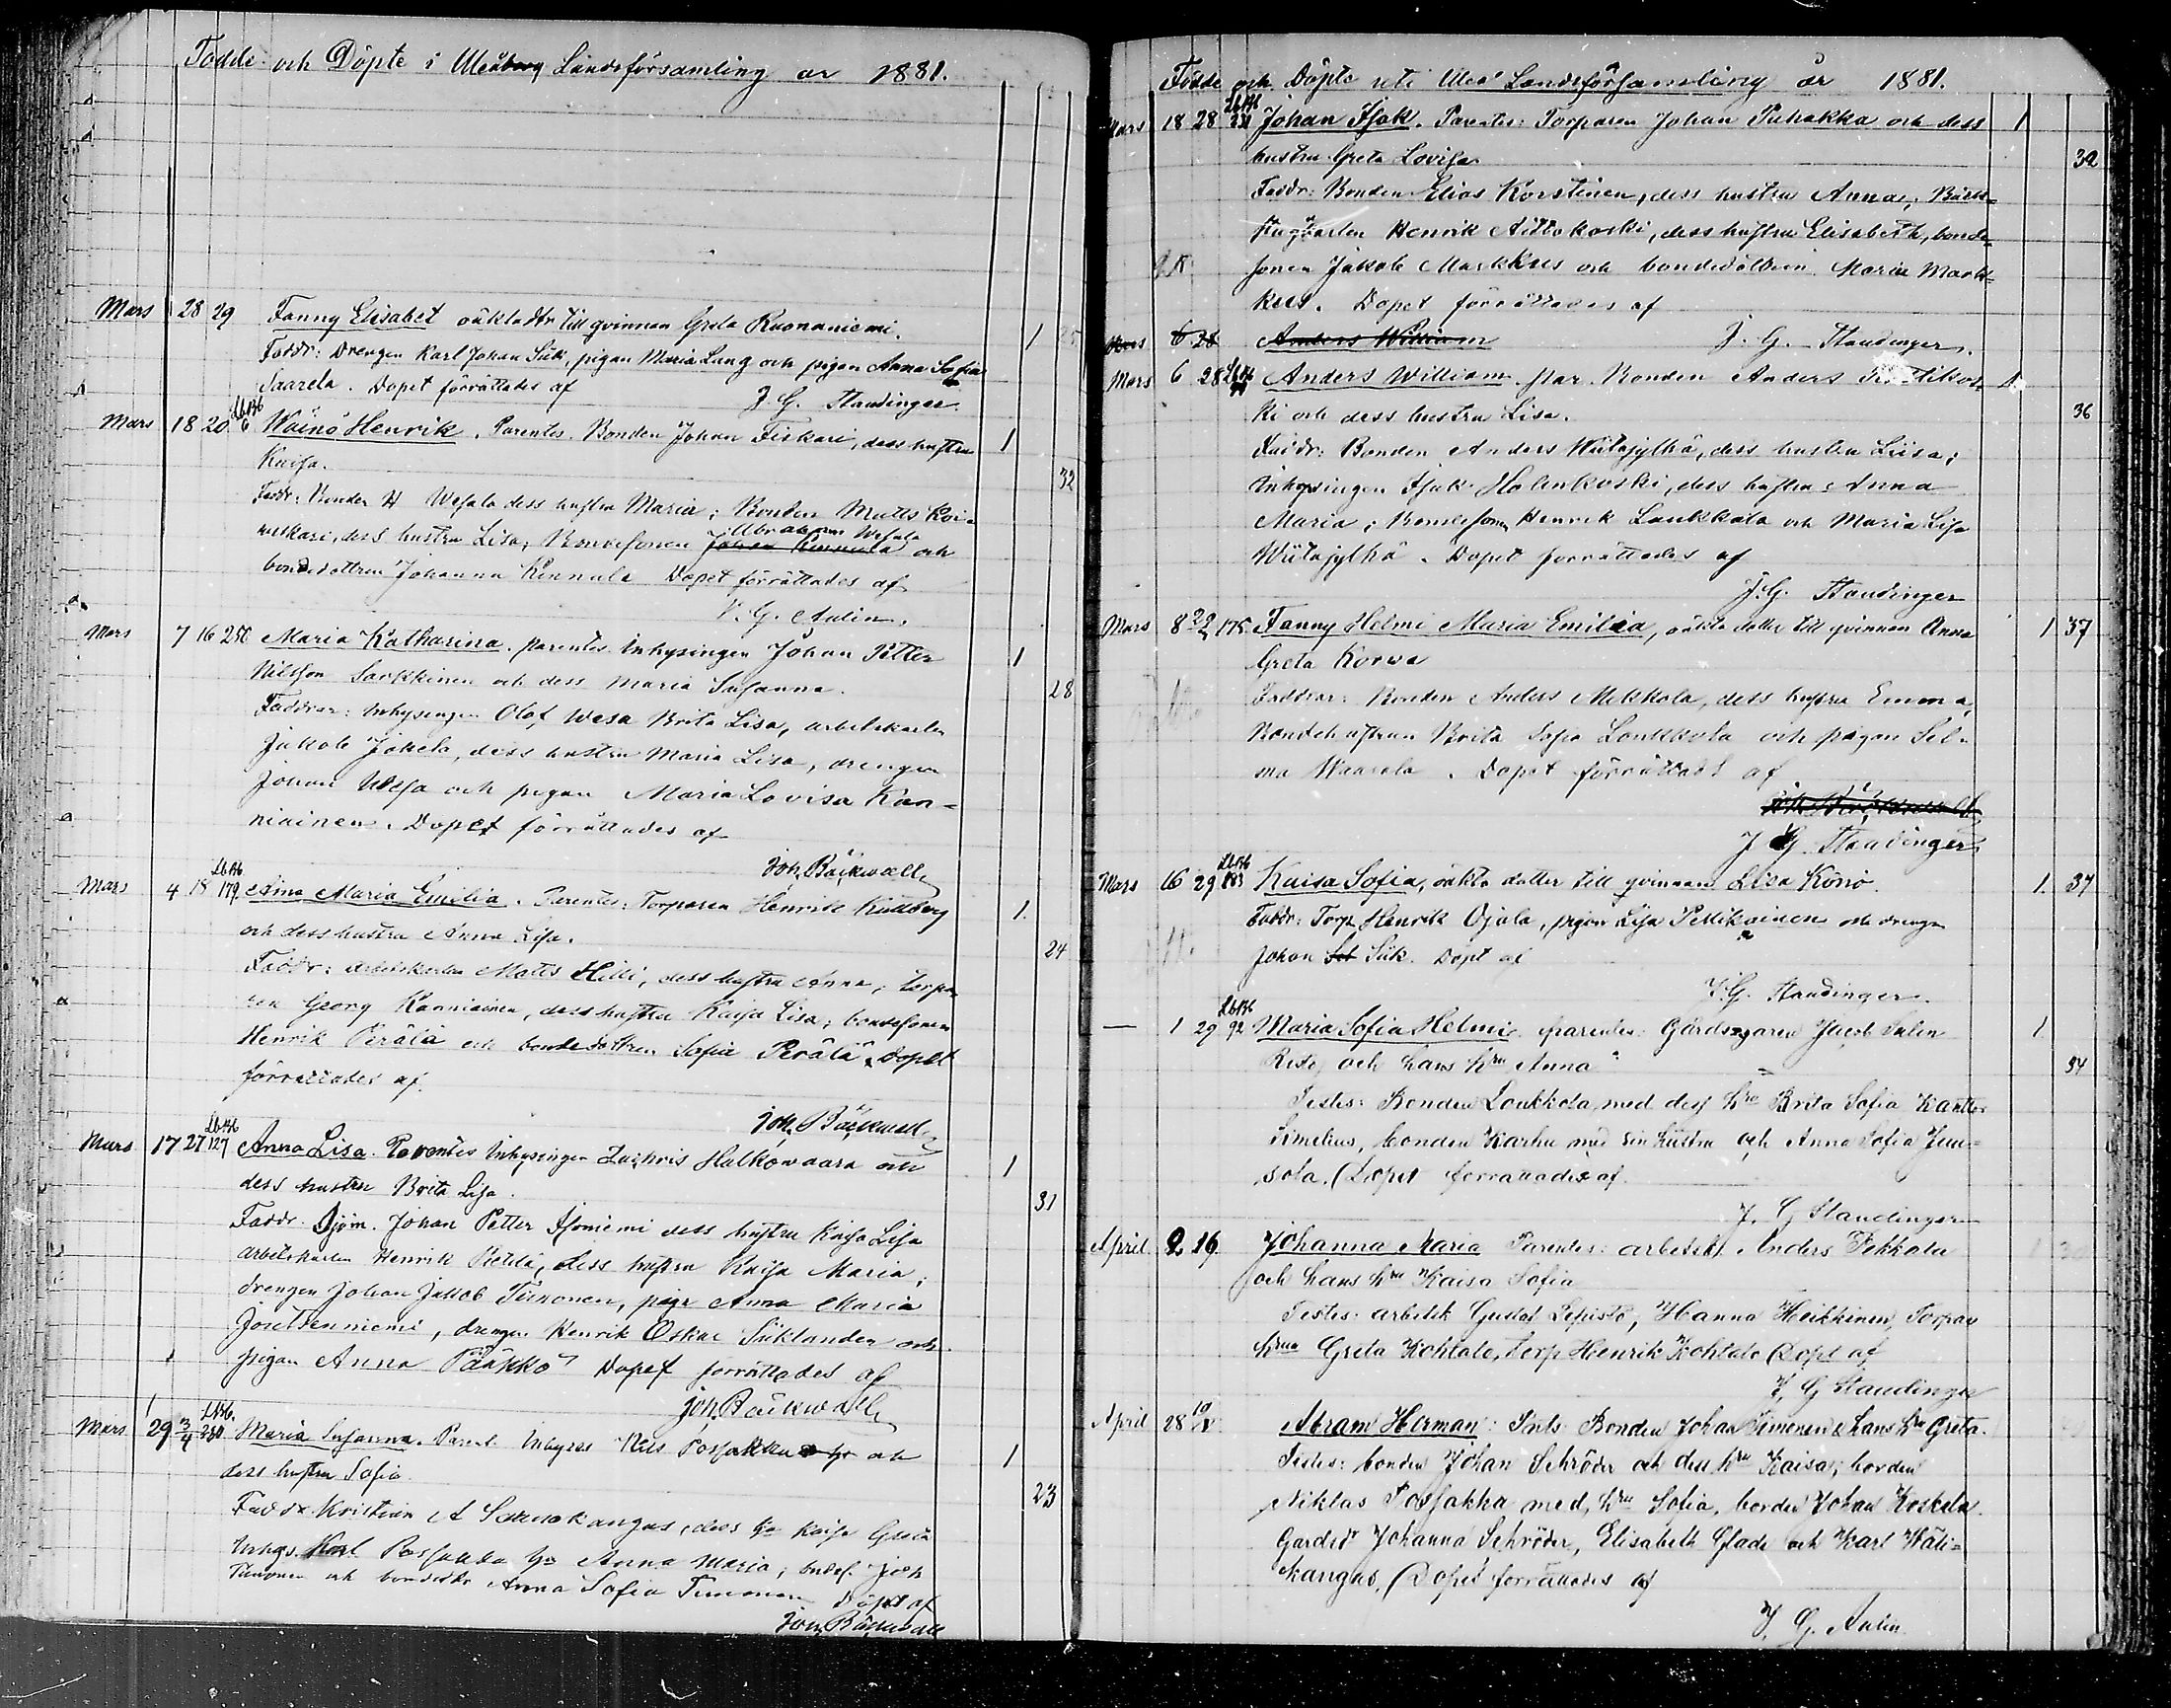 Födde och Döpte i Uleåborg Landsförsamling år 1881.
Mars 28 29 Fanny Elisabet oäkta dtr till qvinnan Greta Ruonaniemi. 1
Faddr: Drengen Karl Johan Siik, pigan Maria Lang och pigan Anna Sofia
Saarela. Dopet förrättades af
J. G. Standinger.
Mars 18 20 6 Wäinö Henrik. Parentes. Bonden Johan Fiskari, dess hustru 1
Kaisa. 32
Faddr: Bonden H Wesala dess hustru Maria; Bonden Matts Koi-
Abraham Wesala
muskari, dess hustru Lisa; Bondesonen Johan Kinnula och
bondedottren Johanna Kinnula Dopet förrättades af
V. G. Aulin.
Mars 7 16 250 Maria Katharina. parentes inhysingen Johan Petter 1
Nilsson Sarkkinen och dess Maria Susanna. 28
Faddrar: inhysingen Olof Wesa Brita Lisa, arbetskarlen
Jakob Jokela, dess hustru Maria Lisa, drengen
Johan Wesa och pigan Maria Lovisa Kan-
niainen. Dopet förrättades af
Joh. Bäckwall
Mars 4 18 179 Aina Maria Emilia. Parentes: Torparen Henrik Kullberg 1.
och dess hustru Anna Lisa. 24
Faddr: arbetskarlen Matts Hilli, dess hustru Anna; torpa-
ren Georg Kanniainen, dess hustru Kaisa Lisa; bondesonen
Henrik Perälä och bondedottren Sofia Perälä. Dopet
förrättades af.
Joh. Bäckwall
Mars 17 27 127 Anna Lisa. Parentes Inhysingen Zachris Halkowaara och 1
dess hustru Brita Lisa. 31
Faddr. Johan Petter dess hustru Kaisa Lisa
arbetskarlen Henrik Pietilä, dess hustru Kaisa Maria;
drengen Johan Jakob Tirronen, piga Anna Maria
drengen Henrik Oskar Siiklander och
pigan Anna Pääkkö Dopet förrättades af
Joh. Bäckwall
Mars 29 3/4 280 Maria Susanna. Parent. Inhyses Nils Possakka och 1
dess hustru Sofia. 23
Faddr Kristian A dess Kaisa Greta
Inhys. Karl Possakka Anna Maria; bondes. Joh
Timonen och bondedtr Anna Sofia Timonen Döpt af
Joh. Bäckwall
Födde och Döpte uti Uleå Landsförsamling år 1881.
Mars 18 28 231 Johan Isak. Parentes: Torparen Johan Puhakka och dess 1
hustru Greta Lovisa. 32
Faddr: Bonden Elias Korstinen, dess hustru Anna; Back-
stugukarlen Henrik Aittokoski, dess hustru Elisabeth, bonde-
sonen Jakob Markkus och bondedottren Maria Mark-
kus. Dopet förrättades af
Mars 6 28 Anders William J. G. Standinger.
Mars 6 28 Anders William. Par. Bonden Anders 1
ki och dess hustru Lisa. 36
Faddr: Bonden Anders Wiitajylhä, dess hustru Liisa;
inhysingen Isak Holmkoski, dess hustru Anna
Maria; Bondesonen Henrik Laukkala och Maria Lisa
Wiitajylhä. Dopet förrättades af
J. G. Standinger
Mars 8 22 175 Fanny Helmi Maria Emilia, oäkta dotter till qvinnan Anna 1 37
Greta Korwa
Faddrar: Bonden Anders Mikkola, dess hustru Emma,
Bondehustrun Brita Sofia Loukkola och pigan Sel-
ma Waarala. Dopet förrättades af
J G Standinger
Mars 16 29 183 Kaisa Sofia, oäkta dotter till qvinnan Lisa Könö. 1. 37
Faddr: Torp. Henrik Ojala, pigan Lisa Pellikainen och drengen
Johan Siik. Döpt af
J. G. Standinger.
— 1 29 92 Maria Sofia Helmi. parentes: Gårdsegaren Jacob Salin 1
Risto och hans hru Anna 34
Testes: Bonden Loukkola med dess hru Brita Sofia Kantter
Simelius, bonden Karhu med sin hustru och Anna Sofia Juu-
sola. Dopet förrättades af
J. G Standinger
April 2 16 Johanna Maria Parentes: arbetsk. Anders Pekkala 1 30
och hans hru Kaisa Sofia
Testes: arbetsk Gustaf Lepistö, Hanna Heikkinen, Torpar
hrun Greta Kohtala, torp Henrik Kohtala Döpt af
J. G Standinger
April 28 10/V Abram Herman: Parts. Bonden Johan Timonen & hans hru Greta.
Testes: bonden Johan Schröder och dess hru Kaisa; bonden
Niklas Possakka med hru Sofia, bonden Johan Koskela.
Gårdsd Johanna Schröder, Elisabeth Glade och Karl Wäli-
kangas. Dopet förrättades af
J. G. Aulin